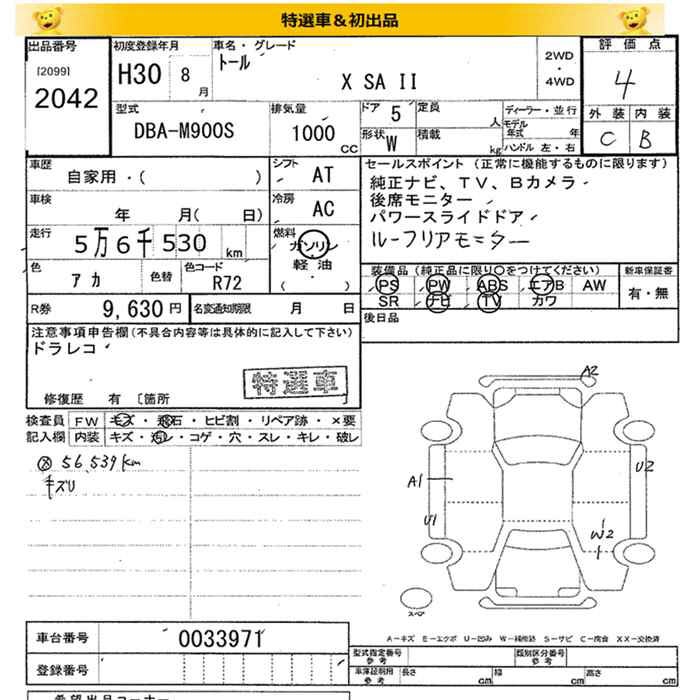 特選車＆初出品
出品番号
[2099]
2042
初度登録年月
H30 8 月
車名・グレード
トール
X SA II
2WD
・
4WD
評価点
4
外装 内装
C B
型式
DBA-M900S
排気量
1000 CC
ドア 5
定員 人
形状 W
積載 kg
ディーラー・並行
モデル年式 年
ハンドル 左・右
車歴
自家用・( )
シフト AT
車検
年 月( 日)
冷房 AC
走行
5万6千530 km
燃料
ガソリン
軽油
( ・ )
色
アカ
色替
色コード
R72
R券 9,630 円
名変通知期限 月 日
セールスポイント (正常に機能するものに限ります)
純正ナビ、TV、Bカメラ、
後席モニター
パワースライドドア
ルーフリアモニター
装備品 (純正品に限り○をつけてください)
PS PW ABS エアB AW
SR ナビ TV カワ
新車保証書
有・無
後日品
注意事項申告欄(不具合内容等は具体的に記入して下さい)
ドラレコ
特選車
修復歴 有 〔箇所
検査員
記入欄
FW キズ・飛石・ヒビ割・リペア跡・×要
内装 キズ・汚レ・コゲ・穴・スレ・キレ・破レ
56,539km
キズリ
A2
A1
U1
U2
W2
スペア
A－キズ E－エクボ U－凹み W－補修跡 S－サビ C－腐食 XX－交換済
車台番号 0033971
登録番号
型式指定番号
参考
類別区分番号
参考
車庫証明用
参考
長さ cm 幅 cm 高さ cm
希望出品コーナー